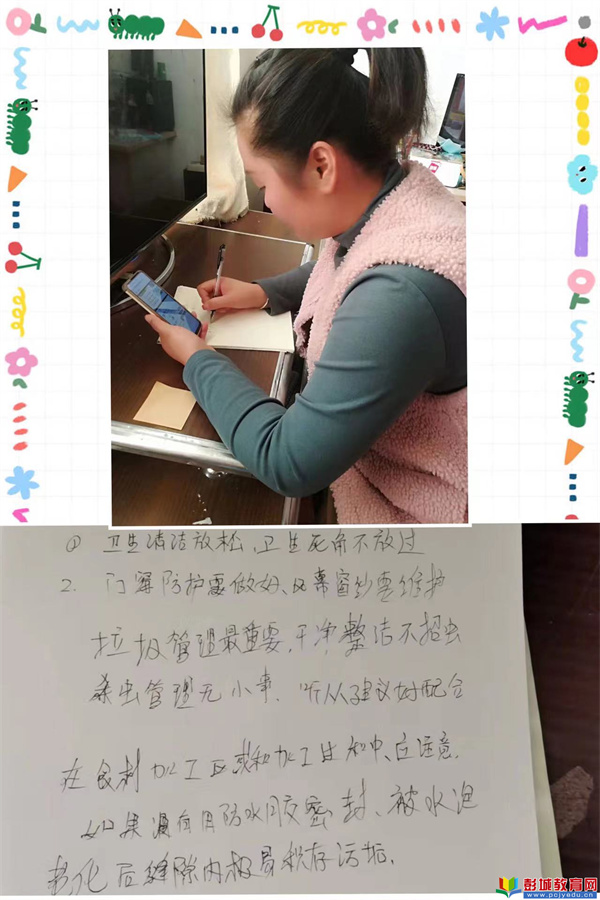 ① 卫生清洁放松、卫生死角不放过
2. 门窗防护要做好、风幕窗纱要维护
垃圾管理最重要,干净整洁不招虫
杀虫管理无小事,听从建议好配合
在食制加工区或和加工生和中、应注意,
如果没有用防水胶密封、被水泡
老化后缝隙内极易积存污垢,
彭城教育网
www.pcjyedu.cn